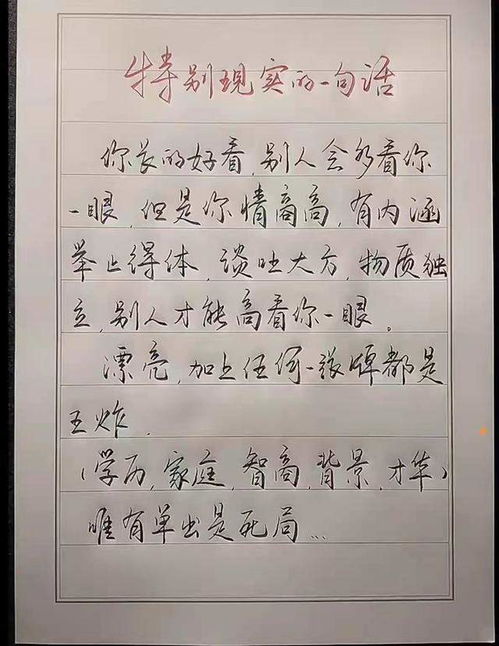 特别现实的一句话
你长的好看,别人会多看你
一眼,但是你情商高,有内涵
举止得体,谈吐大方,物质独
立,别人才能高看你一眼。
漂亮,加上任何一张牌都是
王炸.
(学历,家庭,智商,背景,才华)
唯有单出是死局...